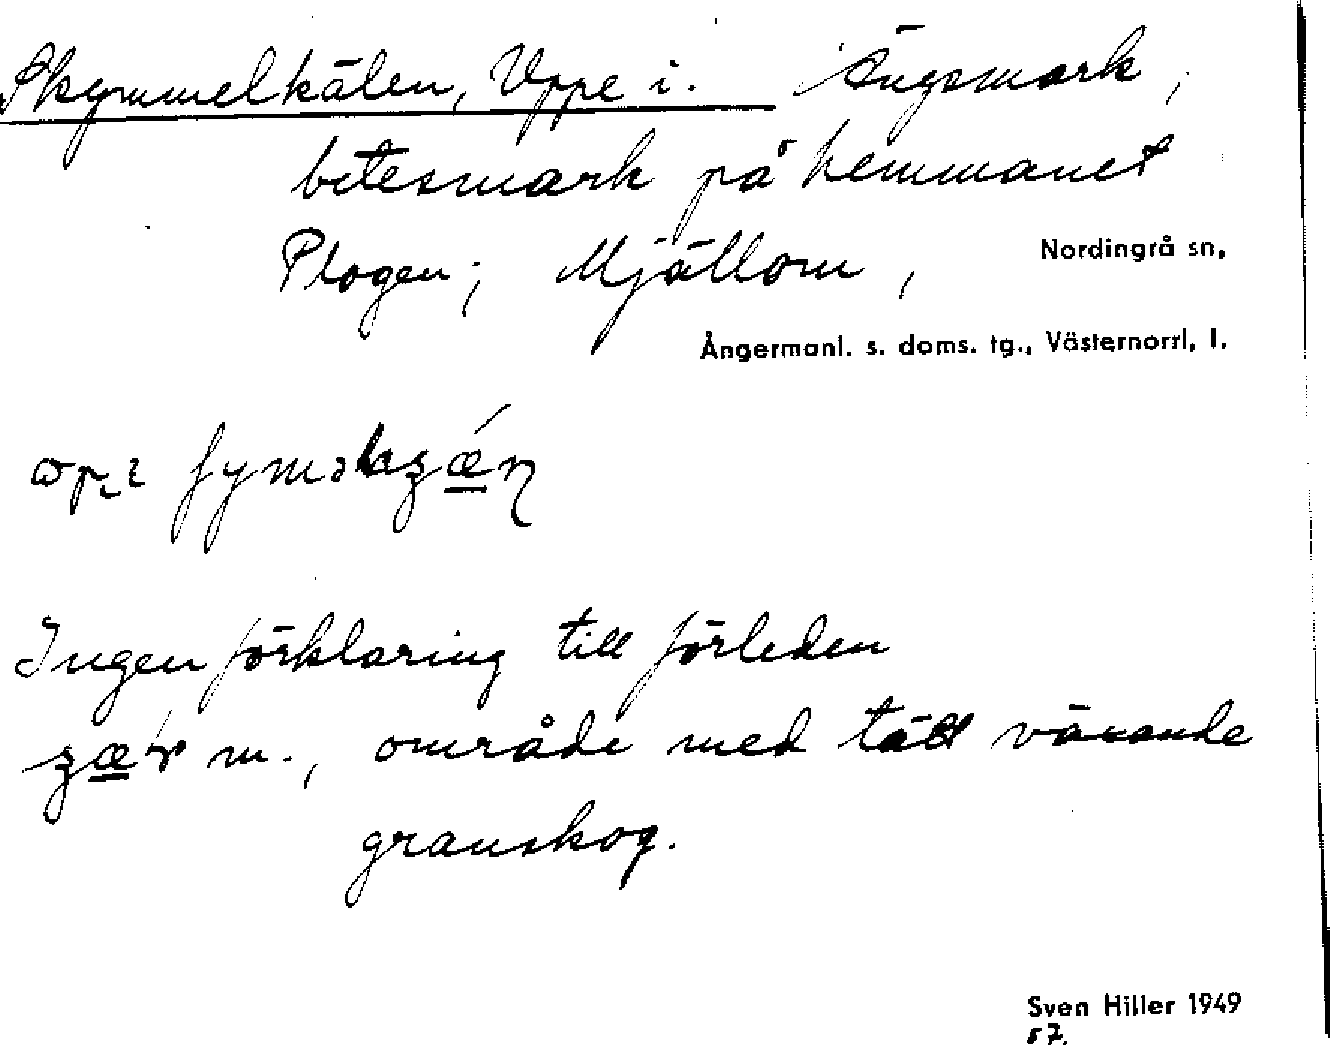 Skymmelkälen, Uppe i. Ängsmark,
betesmark på hemmanet
Plogen; Mjällom, Nordingrå sn,
Ångermanl. s. doms. tg., Västernorrl. l.
Ingen förklaring till förleden
m., område med tätt växande
granskog.
Sven Hiller 1949
57.